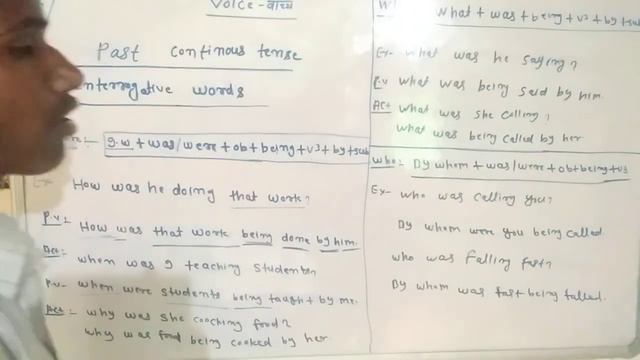 Voice - वाच्य
Past continous tense
Interrogative words
q.w + was/were + ob + being + v3 + by + sub
How was he doing that work?
P.v:- How was that work being done by him.
Act:- when was I teaching students
P.v:- when were students being taught by me.
Act:- why was she cooching food?
why was food being cooked by her
What + was + being + v3 + by + sub
Ex- what was he saying?
P.v what was being said by him.
Act- what was she calling?
what was being called by her
Who:- By whom + was/were + ob + being + v3
Ex- who was calling you?
By whom were you being called.
who was falling fast?
By whom was fast being falled.